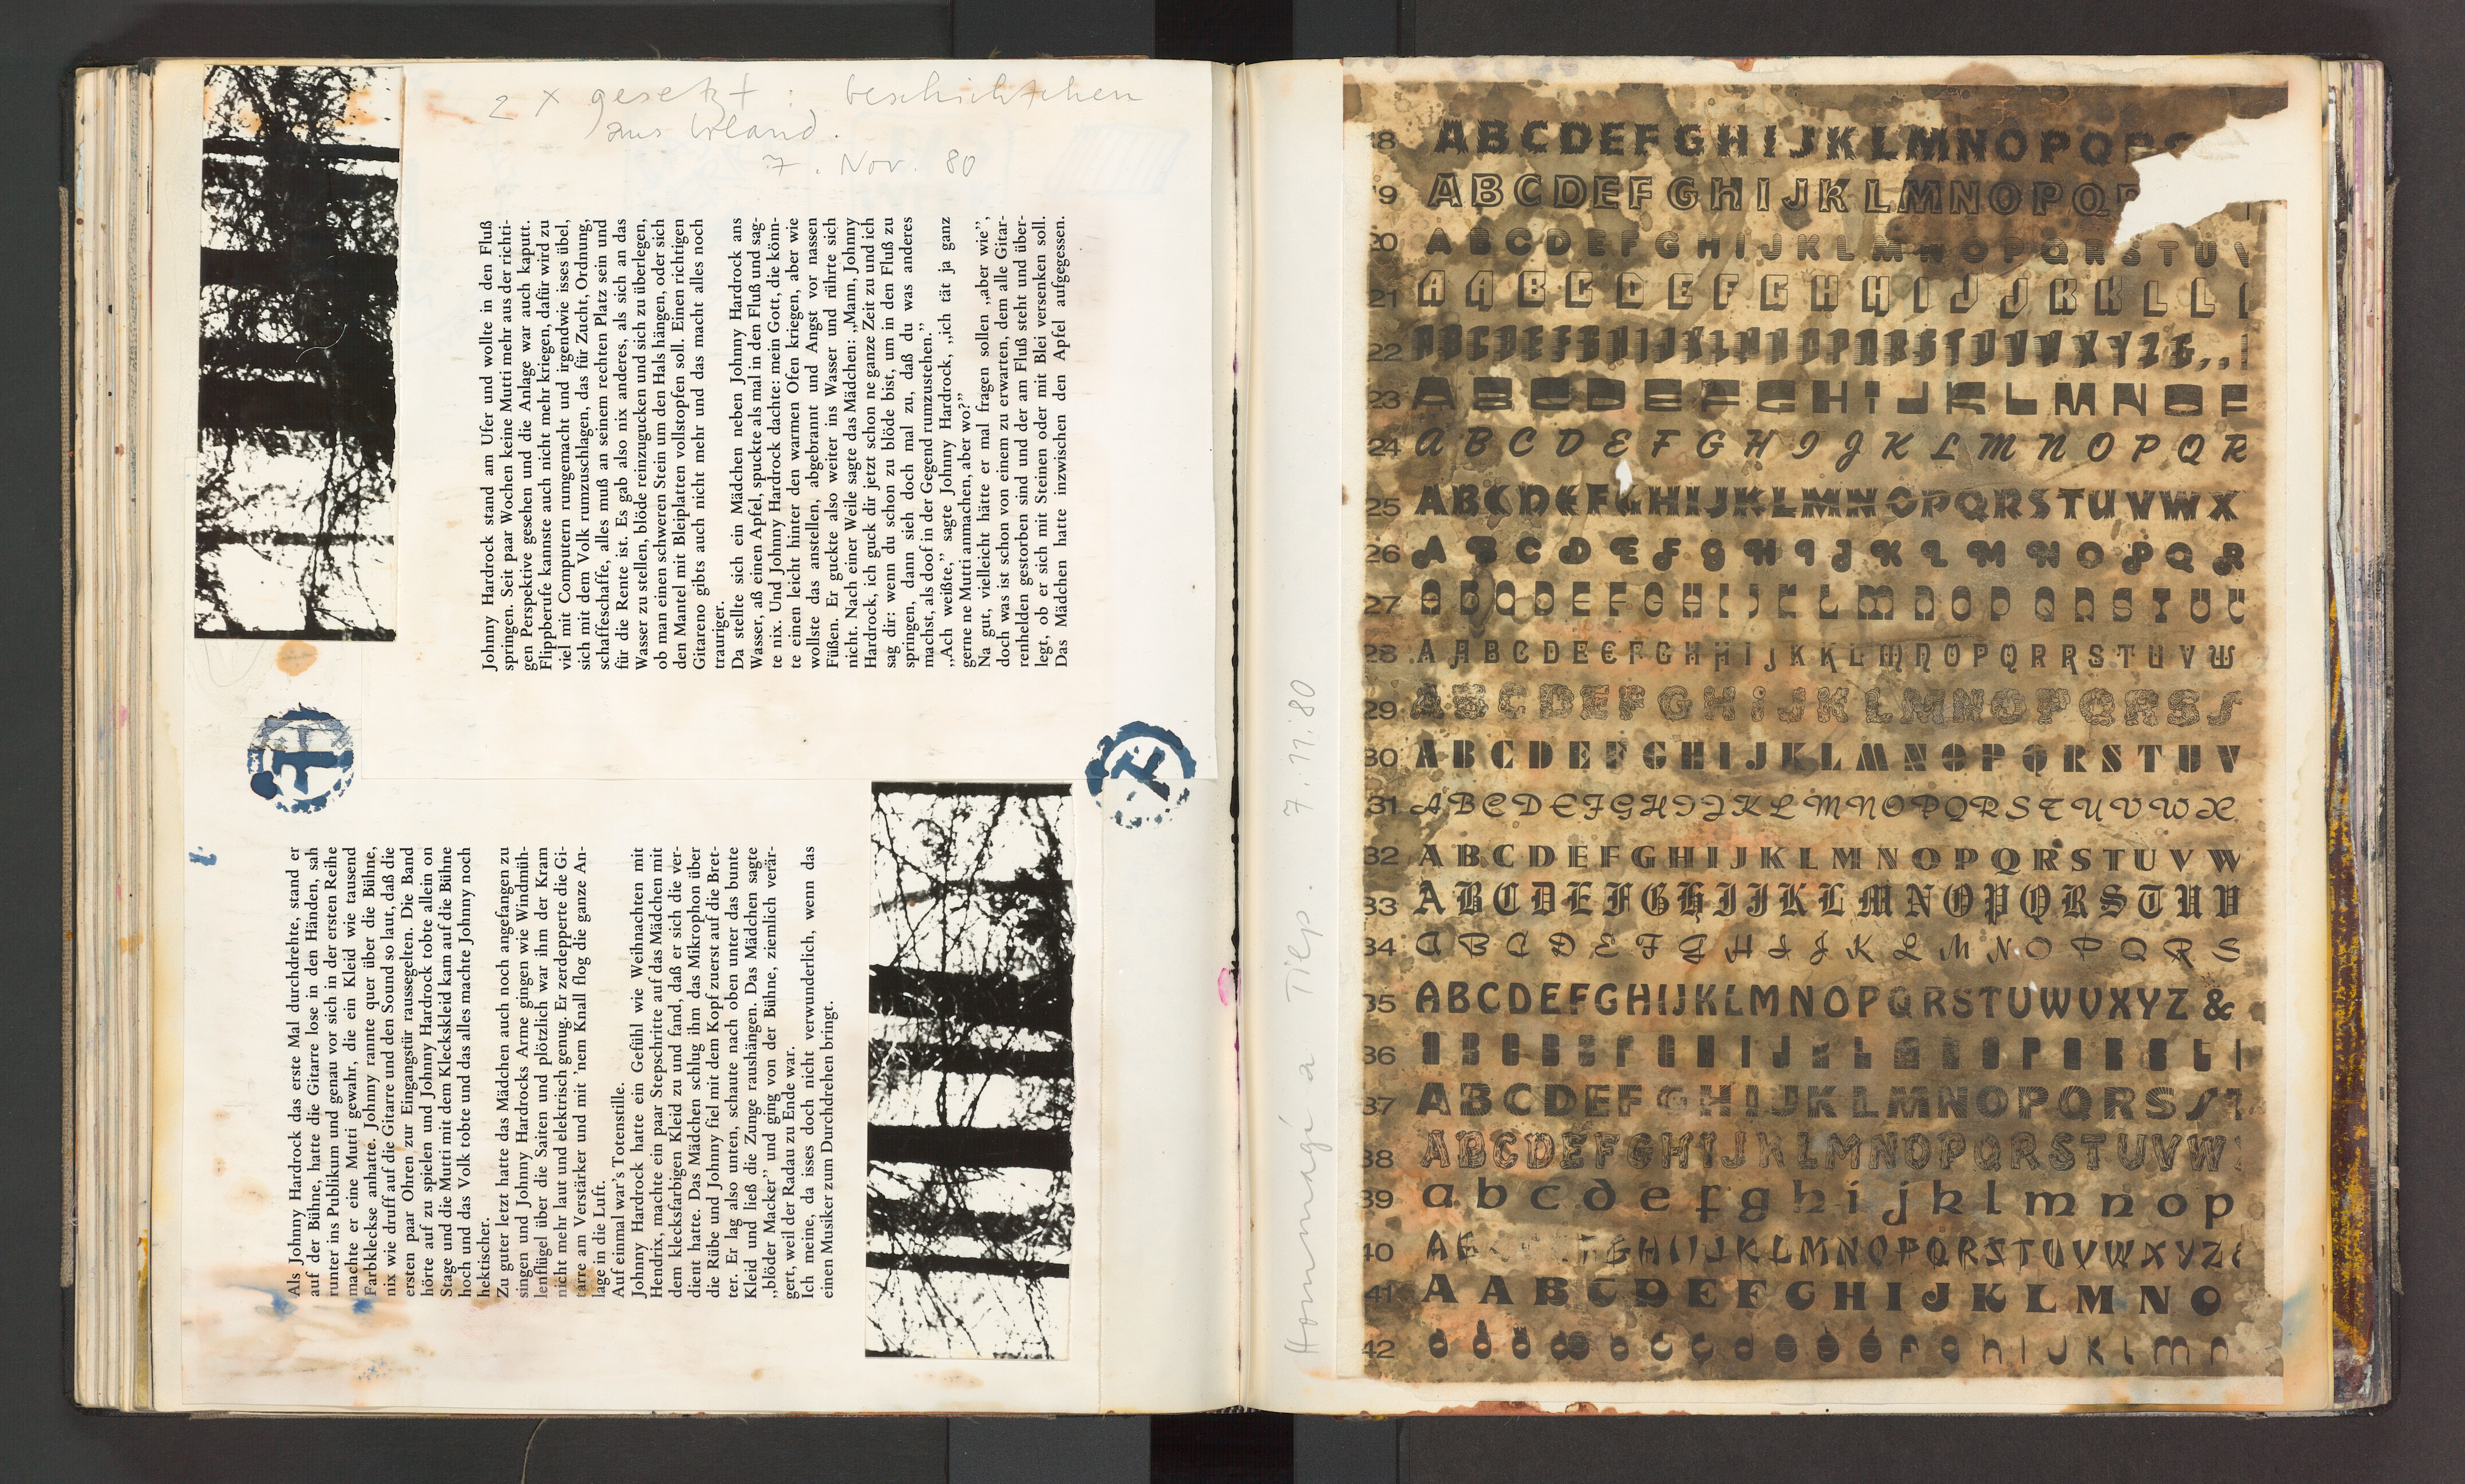 2 x gesetzt : Geschichtchen
aus Irland.
7. Nov. 80
Johnny Hardrock stand am Ufer und wollte in den Fluß
springen. Seit paar Wochen keine Mutti mehr aus der richti-
gen Perspektive gesehen und die Anlage war auch kaputt.
Flippberufe kannste auch nicht mehr kriegen, dafür wird zu
viel mit Computern rumgemacht und irgendwie isses übel,
sich mit dem Volk rumzuschlagen, das für Zucht, Ordnung,
schaffeschaffe, alles muß an seinem rechten Platz sein und
für die Rente ist. Es gab also nix anderes, als sich an das
Wasser zu stellen, blöde reinzugucken und sich zu überlegen,
ob man einen schweren Stein um den Hals hängen, oder sich
den Mantel mit Bleiplatten vollstopfen soll. Einen richtigen
Gitareno gibts auch nicht mehr und das macht alles noch
trauriger.
Da stellte sich ein Mädchen neben Johnny Hardrock ans
Wasser, aß einen Apfel, spuckte als mal in den Fluß und sag-
te nix. Und Johnny Hardrock dachte: mein Gott, die könn-
te einen leicht hinter den warmen Ofen kriegen, aber wie
wollste das anstellen, abgebrannt und Angst vor nassen
Füßen. Er guckte also weiter ins Wasser und rührte sich
nicht. Nach einer Weile sagte das Mädchen: „Mann, Johnny
Hardrock, ich guck dir jetzt schon ne ganze Zeit zu und ich
sag dir: wenn du schon zu blöde bist, um in den Fluß zu
springen, dann sieh doch mal zu, daß du was anderes
machst, als doof in der Gegend rumzustehen.”
„Ach weißte,” sagte Johnny Hardrock, „ich tät ja ganz
gerne ne Mutti anmachen, aber wo?”
Na gut, vielleicht hätte er mal fragen sollen „aber wie”,
doch was ist schon von einem zu erwarten, dem alle Gitar-
renhelden gestorben sind und der am Fluß steht und über-
legt, ob er sich mit Steinen oder mit Blei versenken soll.
Das Mädchen hatte inzwischen den Apfel aufgegessen.
Als Johnny Hardrock das erste Mal durchdrehte, stand er
auf der Bühne, hatte die Gitarre lose in den Händen, sah
runter ins Publikum und genau vor sich in der ersten Reihe
machte er eine Mutti gewahr, die ein Kleid wie tausend
Farbkleckse anhatte. Johnny rannte quer über die Bühne,
nix wie druff auf die Gitarre und den Sound so laut, daß die
ersten paar Ohren zur Eingangstür raussegelten. Die Band
hörte auf zu spielen und Johnny Hardrock tobte allein on
Stage und die Mutti mit dem Kleckskleid kam auf die Bühne
hoch und das Volk tobte und das alles machte Johnny noch
hektischer.
Zu guter letzt hatte das Mädchen auch noch angefangen zu
singen und Johnny Hardrocks Arme gingen wie Windmüh-
lenflügel über die Saiten und plötzlich war ihm der Kram
nicht mehr laut und elektrisch genug. Er zerdepperte die Gi-
tarre am Verstärker und mit ’nem Knall flog die ganze An-
lage in die Luft.
Auf einmal war’s Totenstille.
Johnny Hardrock hatte ein Gefühl wie Weihnachten mit
Hendrix, machte ein paar Stepschritte auf das Mädchen mit
dem klecksfarbigen Kleid zu und fand, daß er sich die ver-
dient hatte. Das Mädchen schlug ihm das Mikrophon über
die Rübe und Johnny fiel mit dem Kopf zuerst auf die Bret-
ter. Er lag also unten, schaute nach oben unter das bunte
Kleid und ließ die Zunge raushängen. Das Mädchen sagte
„blöder Macker” und ging von der Bühne, ziemlich verär-
gert, weil der Radau zu Ende war.
Ich meine, da isses doch nicht verwunderlich, wenn das
einen Musiker zum Durchdrehen bringt.
Hommagé a Tiep. 7.11.80
18 ABCDEFGHIJKLMNOPQRS
19 ABCDEFGHIJKLMNOPQR
20 ABCDEFGHIJKLMNOPQRSTUV
21 AABCDEFGHHIJJKKLL
22 ABCDEFGHIJKLMNOPQRSTUVWXYZ&,.
23 ABCDEFGHIJKLMNOP
24 ABCDEFGHIJKLMNOPQR
25 ABCDEFGHIJKLMNOPQRSTUVWX
26 ABCDEFGHIJKLMNOPQR
27 ABCDEFGHIJKLMNOPQRSTUÜ
28 AABCDEEFGHHIJKKLMNOPQRRSTUVW
29 ABCDEFGHIJKLMNOPQRSS
30 ABCDEFGHIJKLMNOPQRSTUV
31 ABCDEFGHIJKLMNOPQRSTUVWX
32 ABCDEFGHIJKLMNOPQRSTUVW
33 ABCDEFGHIJKLMNOPQRSTUV
34 ABCDEFGHIJKLMNOPQRS
35 ABCDEFGHIJKLMNOPQRSTUWVXYZ&
36 ABCDEFGHIJKLMNOPQRST
37 ABCDEFGHIJKLMNOPQRSST
38 ABCDEFGHIJKLMNOPQRSTUVW
39 abcdefghijklmnop
40 AB GHIJKLMNOPQRSTUVWXYZ
41 AABCDEFGHIJKLMNO
42